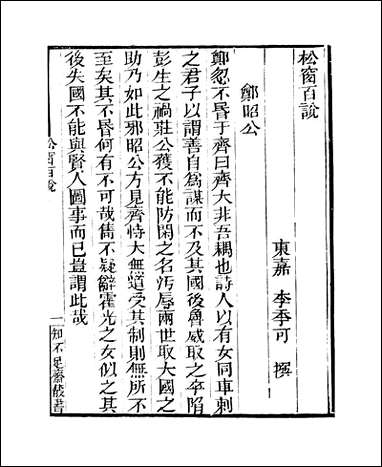 松窗百說
東嘉 李季可 撰
鄭昭公
鄭忽不昬于齊曰齊大非吾耦也詩人以有女同車刺
之君子以謂善自爲謀而不及其國後魯威取之卒陷
彭生之禍莊公獲不能防閑之名汚辱兩世取大國之
助乃如此邪昭公方見齊恃大無道受其制則無所不
至矣其不昬何有不可哉雋不疑辭霍光之女似之其
後失國不能與賢人圖事而已豈謂此哉
松窗百說
一 知不足齋叢書